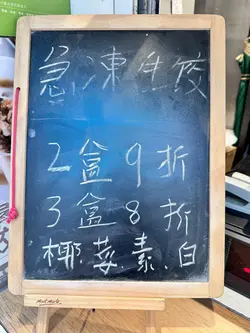 急凍生餃
2盒9折
3盒8折
椰菜.素.白